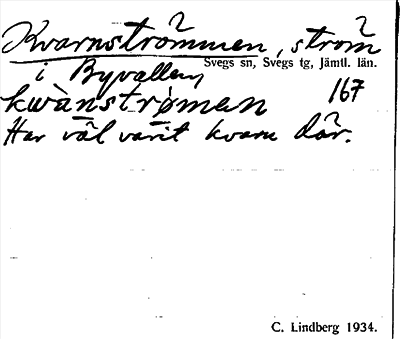 Kvarnströmmen, ström
Svegs sn, Svegs tg, Jämtl. län.
i Byvallen
kwànstrømen 167
Har väl varit kvarn där.
C. Lindberg 1934.